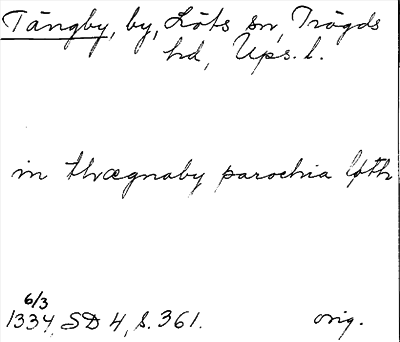 Tängby, by, Löts sn, Trögds
hd, Ups. l.
in thrægnaby parochia løth
6/3
1334, SD 4, s. 361. orig.